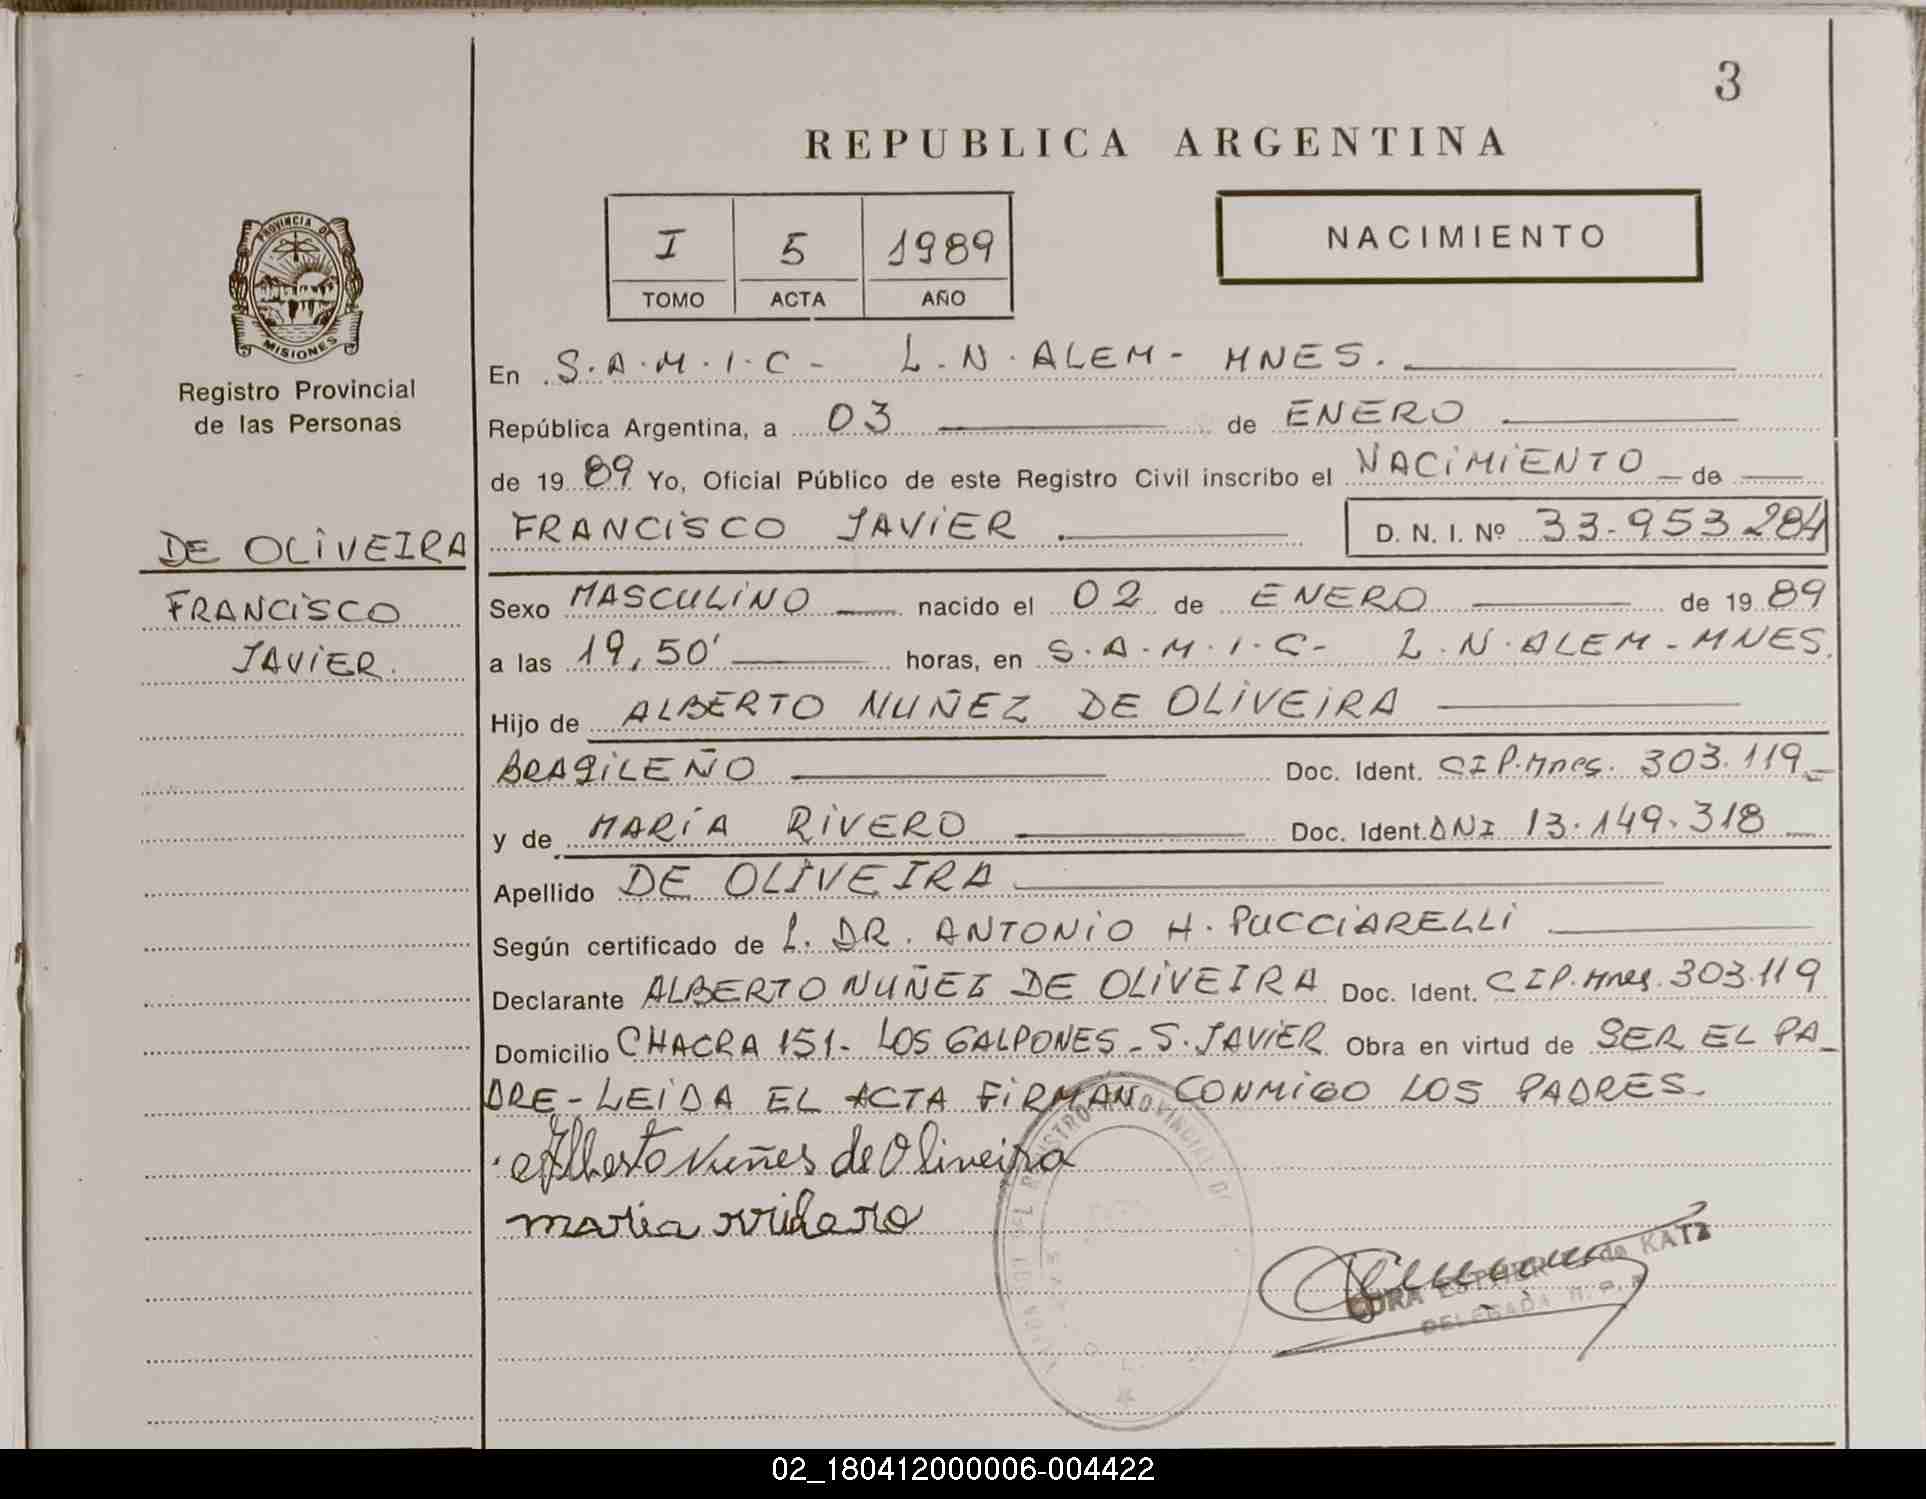 3
REPUBLICA ARGENTINA
I 5 1989
TOMO ACTA AÑO
NACIMIENTO
PROVINCIA DE
MISIONES
Registro Provincial
de las Personas
DE OLIVEIRA
FRANCISCO
JAVIER.
En S.A.M.I.C- L.N.ALEM- MNES.
República Argentina, a 03 de ENERO
de 19 89 Yo, Oficial Público de este Registro Civil inscribo el NACIMIENTO de
FRANCISCO JAVIER D. N. I. Nº 33-953.284
Sexo MASCULINO nacido el 02 de ENERO de 19 89
a las 19,50' horas, en S.A.M.I.C- L.N.ALEM-MNES.
Hijo de ALBERTO NUÑEZ DE OLIVEIRA
BRASILEÑO Doc. Ident. CIP.Mnes. 303.119
y de MARIA RIVERO Doc. Ident. DNI 13.149.318
Apellido DE OLIVEIRA
Según certificado de L. DR. ANTONIO H. PUCCIARELLI
Declarante ALBERTO NUÑEZ DE OLIVEIRA Doc. Ident. CIP.Mnes.303.119
Domicilio CHACRA 151- LOS GALPONES-S.JAVIER Obra en virtud de SER EL PA-
DRE-LEIDA EL ACTA FIRMAN CONMIGO LOS PADRES.
Alberto Nuñes de Oliveira
maria
REGISTRO PROVINCIAL DE
ESTHER de KATZ
DELEGADA R. P. P.
02_180412000006-004422